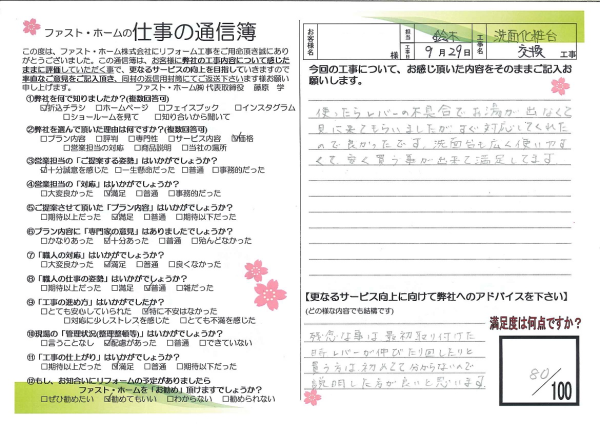 ファスト・ホームの仕事の通信簿
この度は、ファスト・ホーム株式会社にリフォーム工事をご用命頂き誠にあり
がとうございました。この通信簿は、お客様に弊社の工事内容について感じた
ままに評価していただく事で、更なるサービスの向上を目指していきますので
率直なご意見をご記入頂き、同封の返信用封筒にてご返送下さいます様お願い
申し上げます。 ファスト・ホーム㈱代表取締役 藤原 学
①弊社を何で知りましたか?(複数回答可)
☑折込チラシ □ホームページ □フェイスブック □インスタグラム
□ショールームを見て □知り合いから聞いて
②弊社を選んで頂いた理由は何ですか?(複数回答可)
□プラン内容 □評判 □専門性 □サービス内容 ☑価格
□営業担当の対応 □商品説明 □当社の場所
③営業担当の「ご提案する姿勢」はいかがでしょうか?
☑十分誠意を感じた □一生懸命だった □普通 □事務的だった
④営業担当の「対応」はいかがでしょうか?
□大変良かった ☑満足 □普通 □事務的だった
⑤ご提案させて頂いた「プラン内容」はいかがでしょうか?
□期待以上だった ☑満足 □普通 □期待以下だった
⑥プラン内容に「専門家の意見」はありましたでしょうか?
□かなりあった ☑十分あった □普通 □殆んどなかった
⑦「職人の対応」はいかがでしょうか?
□大変良かった ☑満足 □普通 □良くなかった
⑧「職人の仕事の姿勢」はいかがでしょうか?
□期待以上だった □満足 ☑普通 □雑だった
⑨「工事の進め方」はいかがでしたか?
□とても安心していられた ☑特に不安はなかった
□対応に少しストレスを感じた □とても不満を感じた
⑩現場の「管理状況(整理整頓等)」はいかがでしょうか?
□言うことなし ☑配慮があった □普通 □できていない
⑪「工事の仕上がり」はいかがでしょうか?
□期待以上だった ☑満足 □普通 □期待以下だった
⑫もし、お知合いにリフォームの予定がありましたら
ファスト・ホームを「お勧め」頂けますでしょうか?
□ぜひ勧めたい ☑勧めてもいい □わからない □勧められない
お客様名 様
担当 鈴木
工事日 9月29日
工事名 洗面化粧台交換 工事
今回の工事について、お感じ頂いた内容をそのままご記入お
願いします。
使ったらレバーの不具合でお湯が出なくて
見に来てもらいましたがすぐ対応してくれた
ので良かったです。洗面台も広く使いやす
くて、安く買う事が出来て満足してます
【更なるサービス向上に向けて弊社へのアドバイスを下さい】
(どの様な内容でも結構です)
残念な事は最初取り付けた
時レバーが伸びたり回したりと
買う方は初めてで分からないので
説明した方が良いと思います
満足度は何点ですか?
80/100